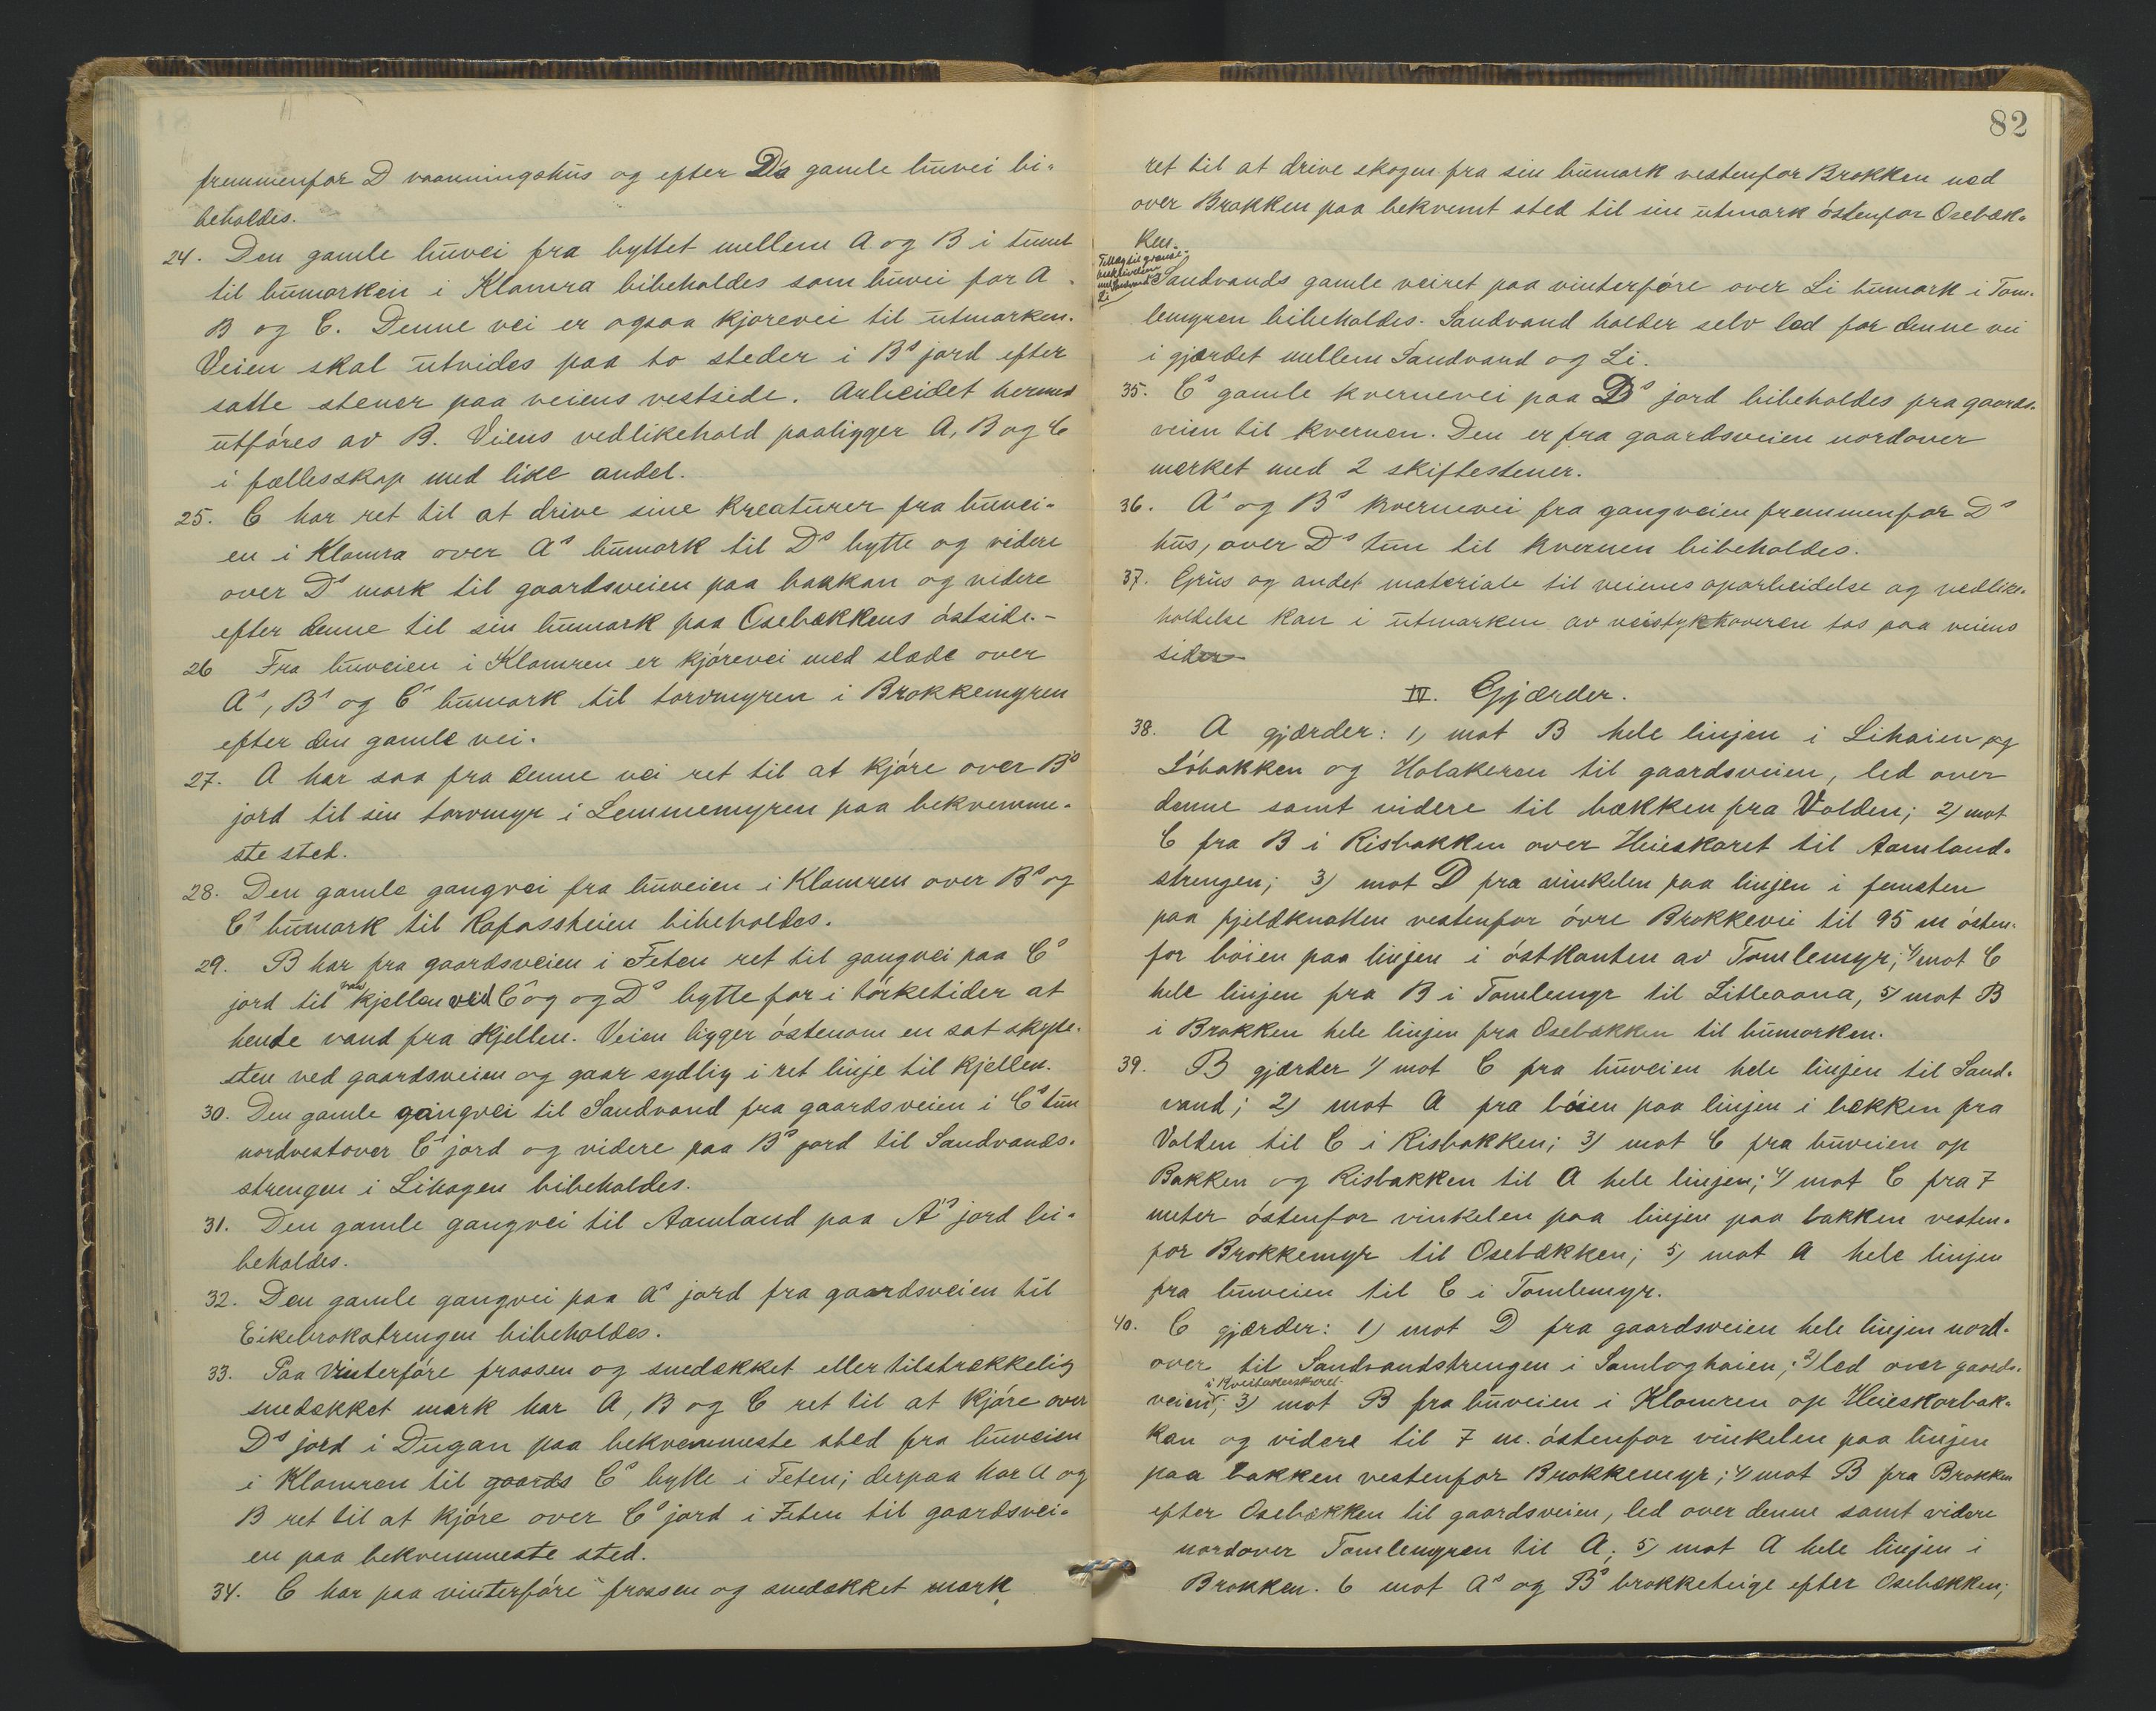 fremmenfor D vaaningshus og efter D's gamle buvei bi-
beholdes.
24. Den gamle buvei fra byttet mellem A og B i tunet
til bumarken i Klomra bibeholdes som buvei for A
B og C. Denne vei er ogsaa kjørevei til utmarken.
Veien skal utvides paa to steder i Bs jord efter
satte stener paa veiens vestside. Arbeidet hermed
utføres av B. Veiens vedlikehold paaligger A, B og C
i fællesskap med like andel.
25. C har ret til at drive sine kreaturer fra buvei-
en i Klomra over As bumark til Ds bytte og videre
over Ds mark til gaardsveien paa bakken og videre
efter denne til sin bumark paa Osebækkens østside.-
26 Fra buveien i Klomren er kjørevei med slæde over
As, Bs og Cs bumark til torvmyren i Brokkemyren
efter den gamle vei.
27. A har saa fra denne vei ret til at kjøre over Bs
jord til sin torvmyr i Lemmemyren paa bekvemme-
ste sted.
28. Den gamle gangvei fra buveien i Klomren over Bs og
Cs bumark til Rafossheien bibeholdes.
29. B har fra gaardsveien i Feten ret til gangvei paa Cs
jord til kjellen ved Cs og og Ds bytte for i tørketider at
hente vand fra kjellen. Veien ligger østenom en sat skyte-
sten ved gaardsveien og gaar sydlig i ret linje til kjellen.
30. Den gamle gangvei til Sandvand fra gaardsveien i Cs tun
nordvestover Cs jord og videre paa Bs jord til Sandvands-
strengen i Lihagen bibeholdes.
31. Den gamle gangvei til Aamland paa A's jord bi-
beholdes.
32. Den gamle gangvei paa As jord fra gaardsveien til
Eikebrokstrengen bibeholdes.
33. Paa vinterføre frossen og snedækket eller tilstrækkelig
snedækket mark har A, B og C ret til at kjøre over
Ds jord i Dugan paa bekvemmeste sted fra buveien
i Klomren til gaards Cs bytte i Feten; derpaa har A og
B ret til at kjøre over Cs jord i Feten til gaardsvei-
en paa bekvemmeste sted.
34. C har paa vinterføre frossen og snedækket mark
82
ret til at drive skogen fra sin bumark vestenfor Brokken ned
over Brokken paa bekvemt sted til sin utmark østenfor Osebæk-
ken.
Tillæg til grænse-
beskrivelsen
mel. Sandvand
Li
Sandvands gamle veiret paa vinterføre over Li bumark i Tom-
lemyren bibeholdes. Sandvand holder selv led for denne vei
i gjærdet mellem Sandvand og Li.
35. Cs gamle kvernevei paa Ds jord bibeholdes fra gaards-
veien til kvernen. Den er fra gaardsveien nordover
merket med 2 skiftestener.
36. As og Bs kvernevei fra gangveien fremmenfor Ds
hus, over Ds tun til kvernen bibeholdes.
37. Grus og andet materiale til veienes oparbeidelse og vedlike-
holdelse kan i utmarken av veistykkeveren tas paa veiens
sider
IV. Gjærder.
38. A gjærder: 1) mot B hele linjen i Lihaien og
Løbakken og Holakeren til gaardsveien, led over
denne samt videre til bækken fra Volden; 2) mot
C fra B i Risbakken over Heieskaret til Aamland-
strengen; 3) mot D fra vinkelen paa linjen i
paa fjeldknatten vestenfor øvre Brokkevei til 95 m østen-
for bøien paa linjen i østkanten av Tomlemyr; 4) mot C
hele linjen fra B i Tomlemyr til Litleaana, 5) mot B
i Brokken hele linjen fra Osebækken til bumarken.
39. B gjærder 1) mot C fra buveien hele linjen til Sand-
vand; 2) mot A fra bøien paa linjen i bækken fra
Volden til C i Risbakken; 3) mot C fra buveien op
Bakken og Risbakken til A hele linjen; 4) mot C fra 7
meter østenfor vinkelen paa linjen paa bakken vesten-
for Brokkemyr til Osebækken; 5) mot A hele linjen
fra buveien til C i Tomlemyr.
40. C gjærder: 1) mot D fra gaardsveien hele linjen nord-
over til Sandvandstrengen i Samloghaien; 2) led over gaards-
i Kveitakerskaret
veien; 3) mot B fra buveien i Klomren op Heieskorbak-
ken og videre til 7 m. østenfor vinkelen paa linjen
paa bakken vestenfor Brokkemyr; 4) mot B fra Brokken
efter Osebækken til gaardsveien, led over denne samt videre
nordover Tomlemyren til A; 5) mot A hele linjen i
Brokken. 6 mot As og Bs brokketeige efter Osebækken;